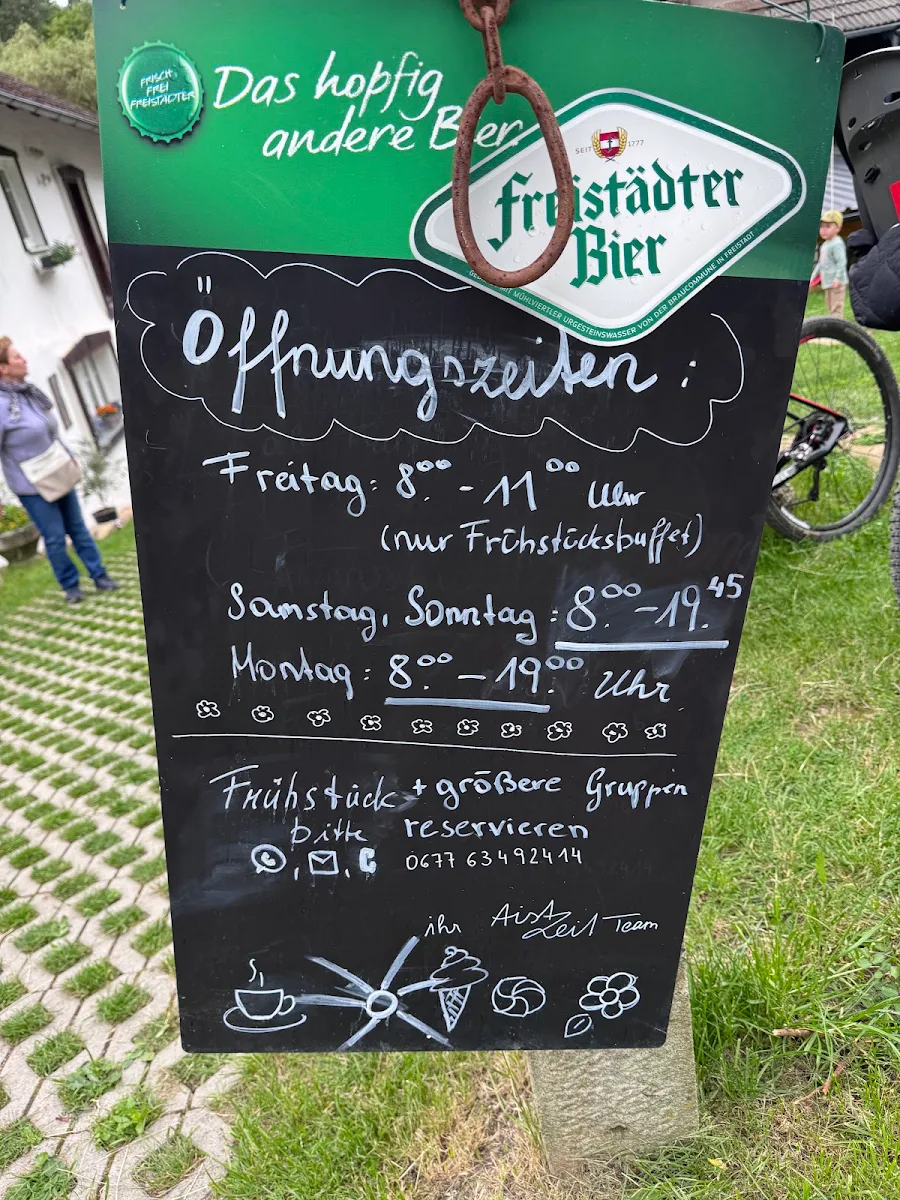 FRISCH,
FREI
FREISTÄDTER
Das hopfig
andere Bier.
SEIT 1777
Freistädter
Bier
MÜHLVIERTLER URGESTEINSWASSER VON DER BRAUCOMMUNE IN FREISTADT
Öffnungszeiten:
Freitag: 8.00 - 11.00 Uhr
(nur Frühstücksbuffet)
Samstag, Sonntag: 8.00 - 19.45
Montag: 8.00 - 19.00 Uhr
Frühstück + größere Gruppen
bitte reservieren
0677 63492414
ihr AistZeit Team